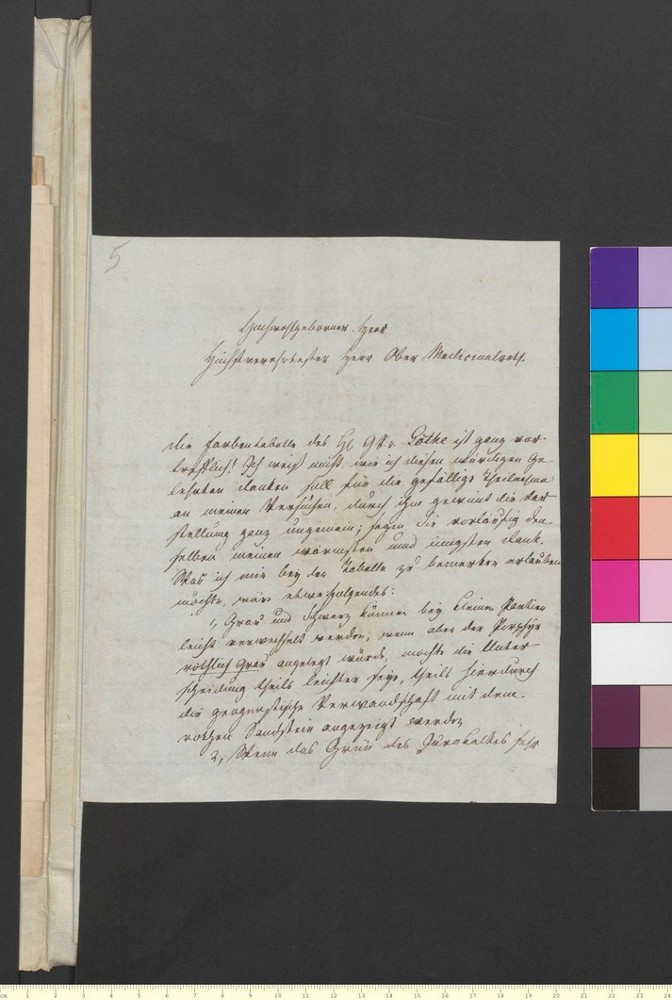 5
Hochwohlgeborner Herr
Höchstverehrtester Herr Ober Medicinalrath.
Die Farbentabelle des H. v. Göthe ist ganz vor-
trefflich! Ich weiß nicht wie ich diesem würdigen Ge-
lehrten danken soll für die gefällige Theilnahme
an meinen Versuchen, durch ihn gewinnt die Dar-
stellung ganz ungemein; sagen Sie vorläufig dem-
selben meinen wärmsten und innigsten Dank.
Was ich mir bey der Tabelle zu bemerken erlauben
möchte, wäre etwa folgendes:
1, Grau und Schwarz können bey kleinen Partien
leicht verwechselt werden, wenn aber der Porphyr
röthlich Grau angelegt würde, möchte die Unter-
scheidung theils leichter seyn, theils hierdurch
die geognostische Verwandschaft mit dem
rothen Sandstein angezeigt werden
2, Wenn das Grün des Jurakalkes sehr